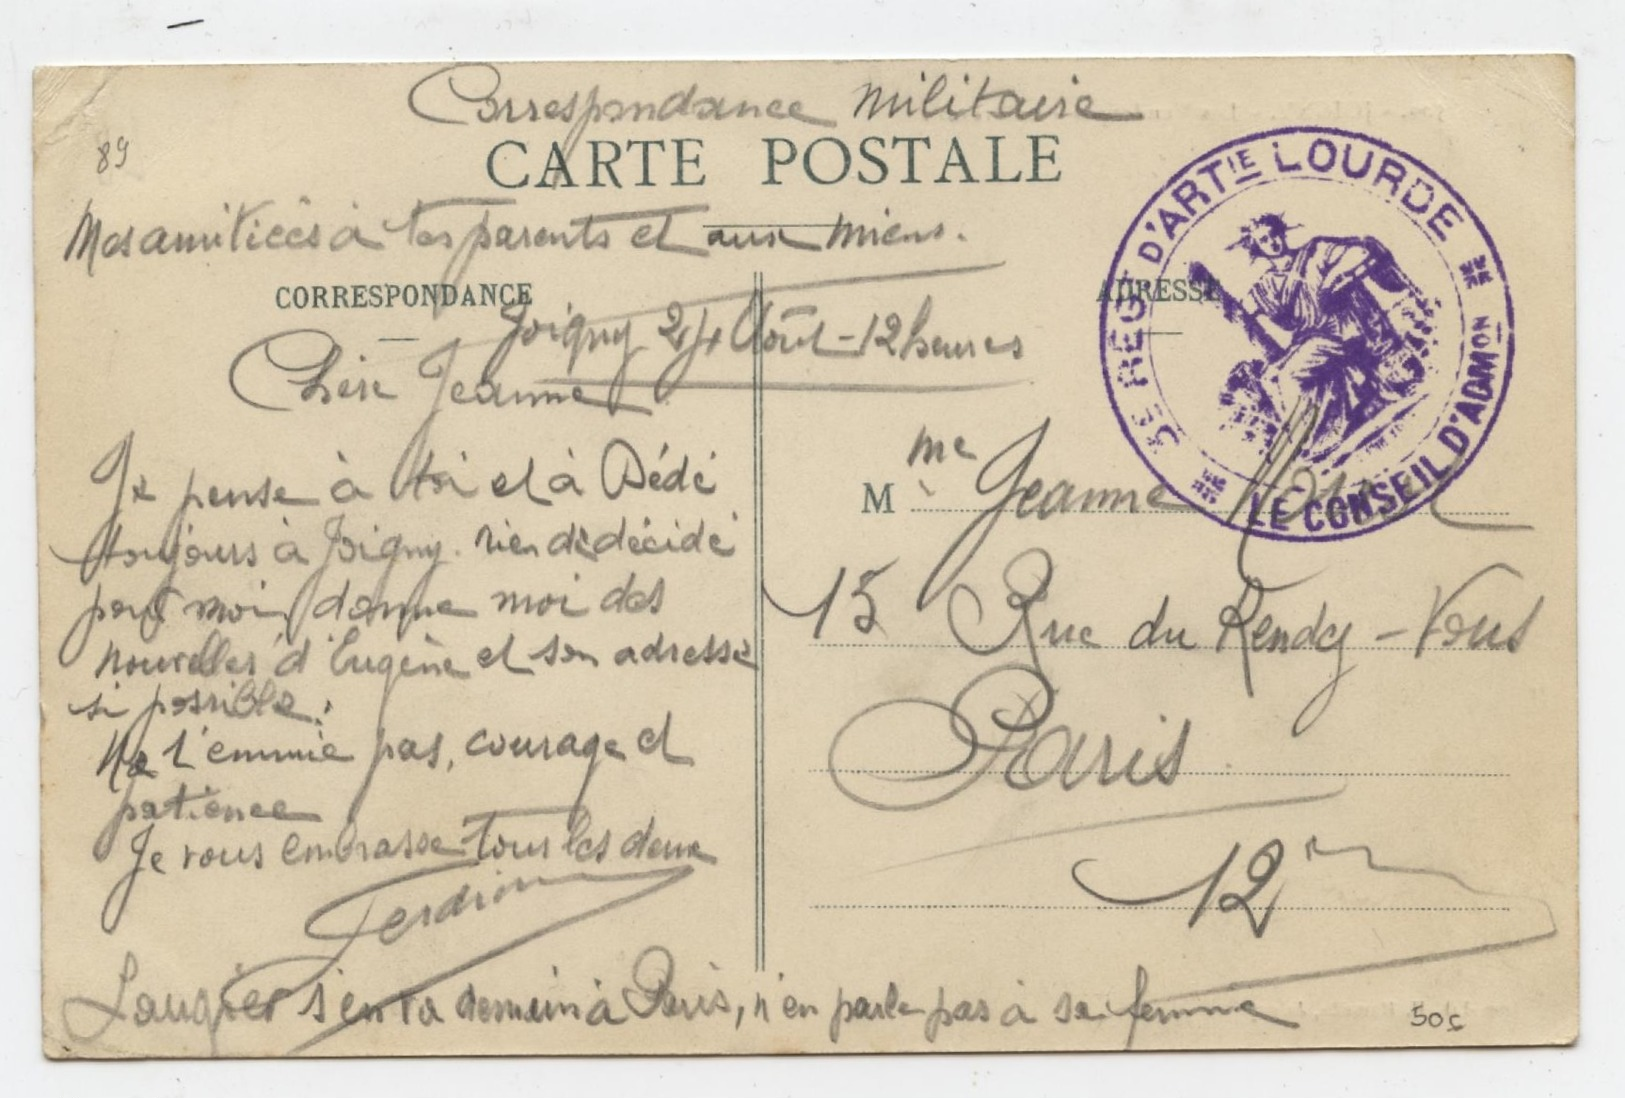 Correspondance Militaire
CARTE POSTALE
89
Mes amitiées à tes parents et aux miens.
CORRESPONDANCE
ADRESSE
Joigny 24 Août - 12 heures
Chère Jeanne
Je pense à toi et à Dédé
toujours à Joigny. rien de décidé
pour moi, donne moi des
nouvelles d'Eugène et son adresse
si possible.
Ne t'ennuie pas, courage et
patience
Je vous embrasse tous les deux
Laugier s'en va demain à Paris, n'en parle pas à sa femme
3E REGT D'ARTIE LOURDE
LE CONSEIL D'ADMON
M me Jeanne
15 Rue du Rendez-Vous
Paris
12
50c